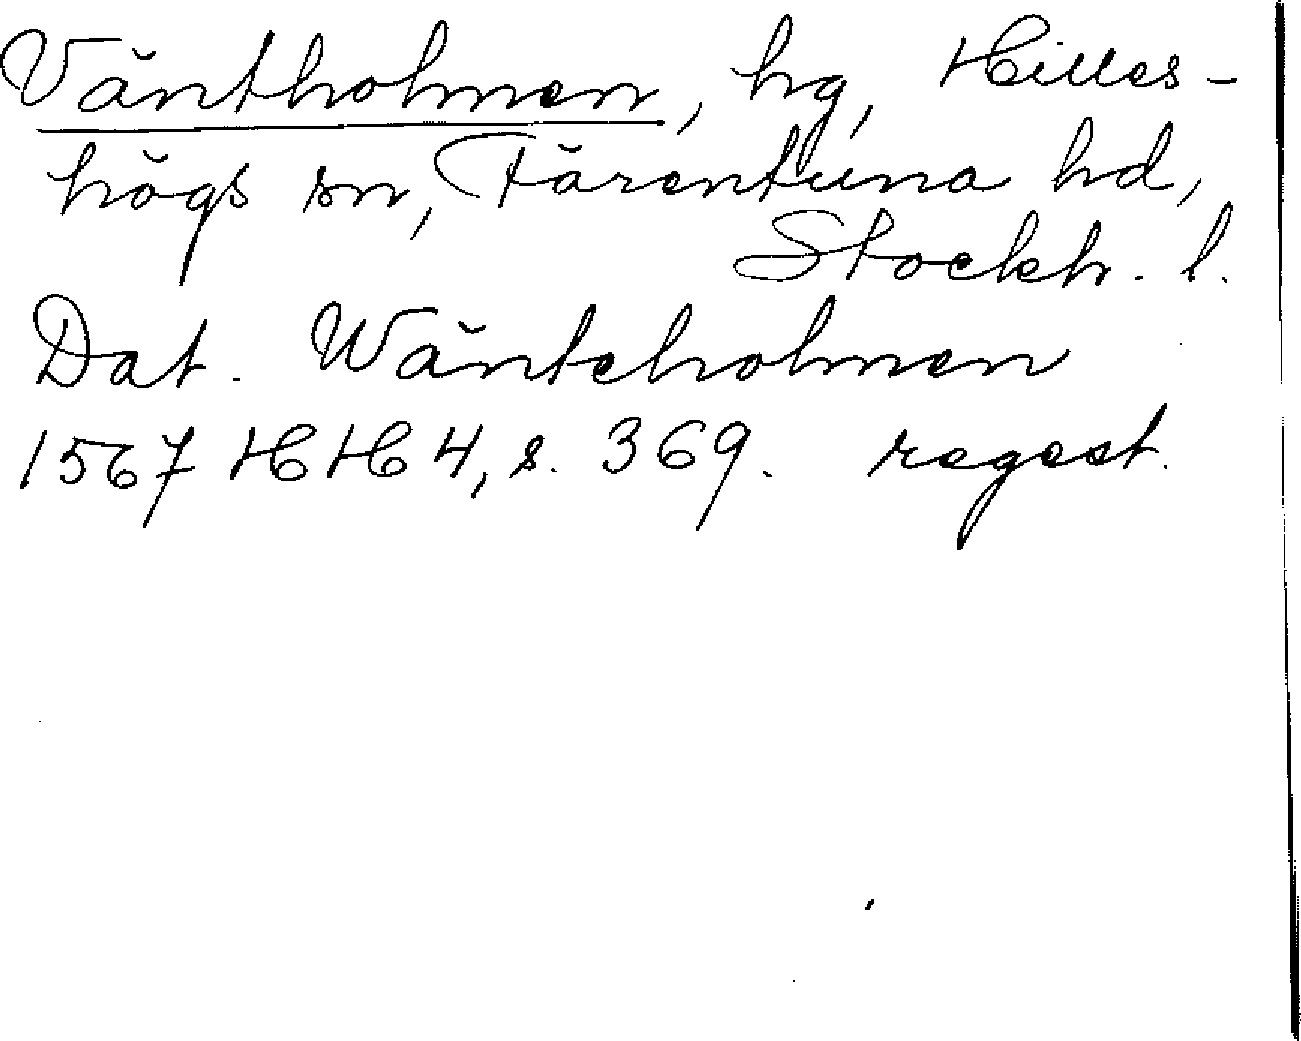 Väntholmen, hg, Hilles-
högs sn, Färentuna hd,
Stockh. l.
Dat. Wänteholmen
1567 HH 4, s. 369. regest.